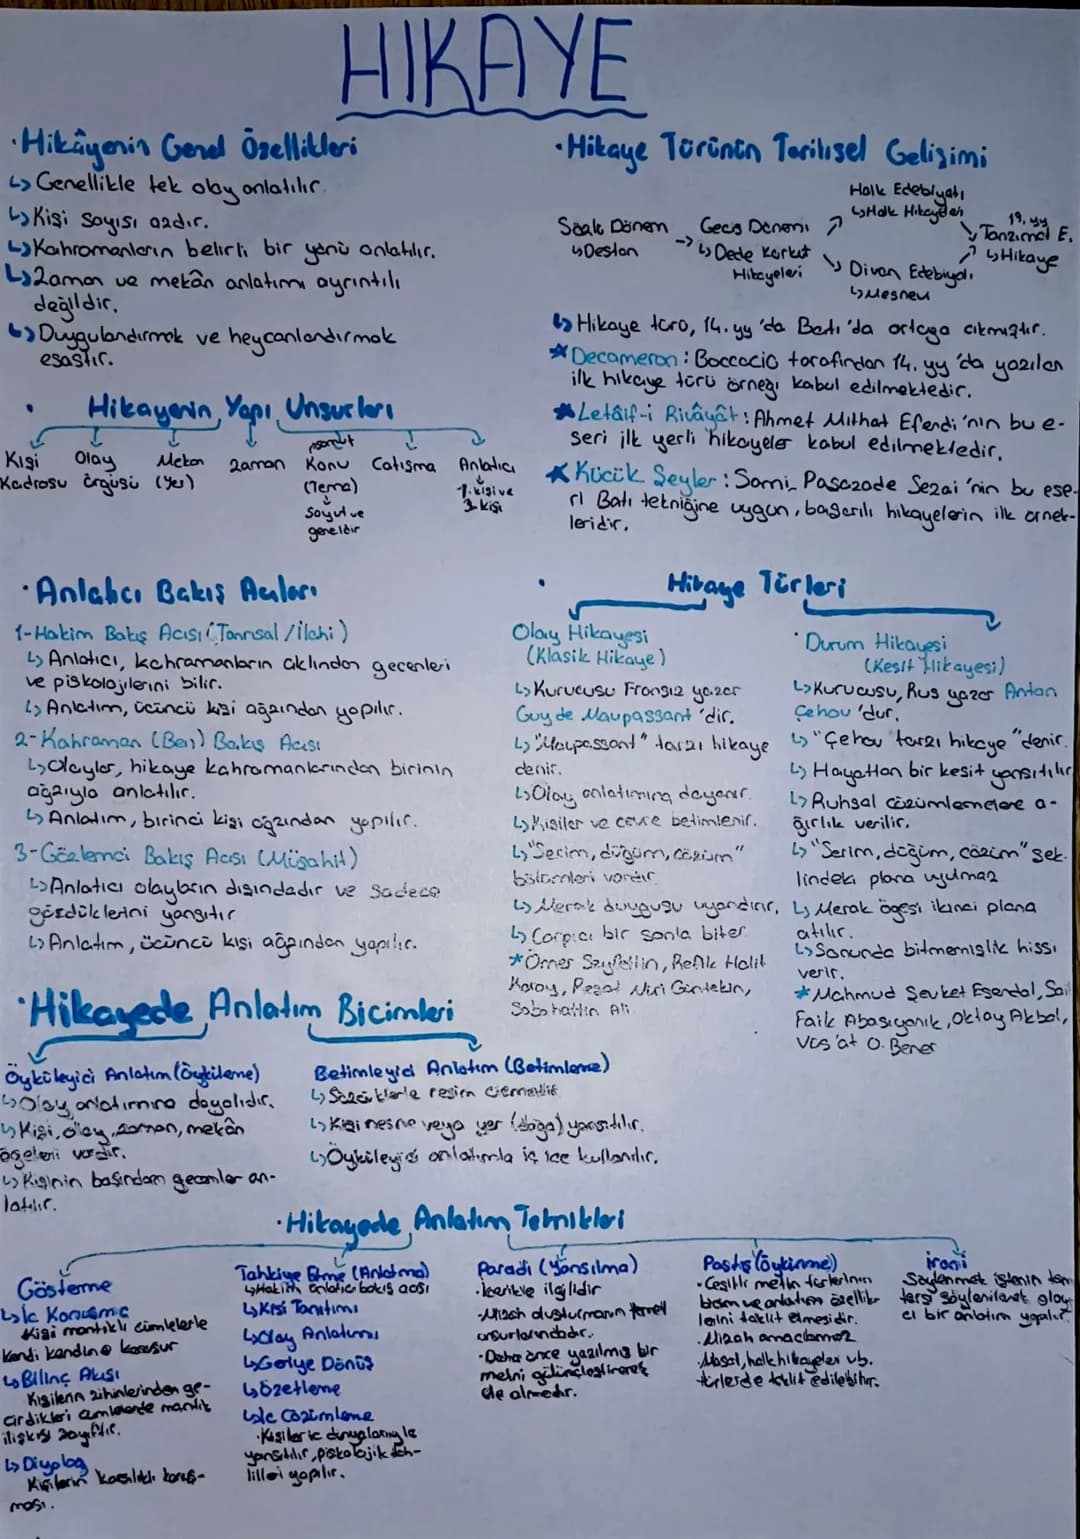 HIKAYE
·Hikâyenin Genel Özellikleri
↳Genellikle tek olay anlatılır.
↳Kişi sayısı azdır.
↳Kahramanların belirli bir yönü anlatılır.
↳Zaman ve mekân anlatımı ayrıntılı
değildir.
↳Duygulandırmak ve heycanlandırmak
esastır.
· Hikayenin Yapı Unsurları
Kişi Kadrosu
Olay örgüsü
Mekan (Yer)
zaman
Konu (Tema)
Soyut ve
geneldir
Çatışma
Anlatıcı
1. kişi ve
3. kişi
·Hikaye Türünün Tarihsel Gelişimi
Sözlü Dönem
↳Destan
→ Geçiş Dönemi
↳Dede Korkut
Hikayeleri
Halk Edebiyatı
↳Halk Hikayeleri
Divan Edebiyatı
↳Mesnevi
19. yy
Tanzimat E.
↳Hikaye
↳Hikaye türü, 14. yy'da Batı'da ortaya çıkmıştır.
*Decameron: Boccacio tarafından 14. yy'da yazılan
ilk hikaye türü örneği kabul edilmektedir.
*Letâif-i Rivâyât: Ahmet Mithat Efendi'nin bu e-
seri ilk yerli hikayeler kabul edilmektedir.
*Küçük Şeyler: Sami Paşazade Sezai'nin bu ese-
ri Batı tekniğine uygun, başarılı hikayelerin ilk örnek-
leridir.
·Anlatıcı Bakış Açıları
1-Hakim Bakış Açısı (Tanrısal/İlahi)
↳Anlatıcı, kahramanların aklından geçenleri
ve piskolojilerini bilir.
↳Anlatım, üçüncü kişi ağzından yapılır.
2-Kahraman (Ben) Bakış Açısı
↳Olaylar, hikaye kahramanlarından birinin
ağzıyla anlatılır.
↳Anlatım, birinci kişi ağzından yapılır.
3-Gözlemci Bakış Açısı (Müşahit)
↳Anlatıcı olayların dışındadır ve sadece
gördüklerini yansıtır
↳Anlatım, üçüncü kişi ağzından yapılır.
· Hikaye Türleri
Olay Hikayesi
(Klasik Hikaye)
↳Kurucusu Fransız yazar
Guy de Maupassant'dir.
↳"Maupassant" tarzı hikaye
denir.
↳Olay anlatımına dayanır.
↳Kişiler ve çevre betimlenir.
↳"Serim, düğüm, çözüm"
bölümleri vardır.
↳Merak duygusu uyandırır.
↳Çarpıcı bir sonla biter
*Ömer Seyfettin, Refik Halit
Karay, Reşat Nuri Güntekin,
Sabahattin Ali
·Durum Hikayesi
(Kesit Hikayesi)
↳Kurucusu, Rus yazar Anton
Çehov'dur.
↳"Çehov tarzı hikaye" denir.
↳Hayattan bir kesit yansıtılır
↳Ruhsal çözümlemelere a-
ğırlık verilir.
↳"Serim, düğüm, çözüm" şek-
lindeki plana uyulmaz
↳Merak ögesi ikinci plana
atılır.
↳Sonunda bitmemişlik hissi
verir.
*Mahmud Şevket Esendal, Sait
Faik Abasıyanık, Oktay Akbal,
Vüs'at O. Bener
·Hikayede Anlatım Biçimleri
Öyküleyici Anlatım (Öyküleme)
↳Olay anlatımına dayalıdır.
↳Kişi, olay, zaman, mekân
ögeleri vardır.
↳Kişinin başından geçenler an-
latılır.
Betimleyici Anlatım (Betimleme)
↳Sözcüklerle resim çizmektir
↳Kişi nesne veya yer (doğa) yansıtılır.
↳Öyküleyici anlatımla iç içe kullanılır.
·Hikayede Anlatım Teknikleri
Gösterme
↳İç Konuşma
Kişi mantıklı cümlelerle
kendi kendine konuşur
↳Bilinç Akışı
Kişilerin zihinlerinden ge-
çirdikleri cümlelerde mantık
ilişkisi zayıftır.
↳Diyalog
Kişilerin karşılıklı konuş-
ması.
Tahkiye Etme (Anlatma)
↳Hakim anlatıcı bakış açısı
↳Kişi Tanıtımı
↳Olay Anlatımı
↳Geriye Dönüş
↳Özetleme
↳İç Çözümleme
·Kişiler iç dünyalarıyla
yansıtılır, piskolojik tah-
lilleri yapılır.
Parodi (Yansılma)
·İçerikle ilgilidir
·Mizah oluşturmanın temel
unsurlarındadır.
·Daha önce yazılmış bir
metni gülünçleştirerek
ele almadır.
Pastiş (Öykünme)
·Çeşitli metin türlerinin
biçim ve anlatım özellik-
lerini taklit etmesidir.
·Mizah amaçlamaz
·Masal, halk hikayeler vb.
türlerde taklit edilebilir.
İroni
Söylenmek istenin tam
tersi söylenilerek alay-
cı bir anlatım yapılır.